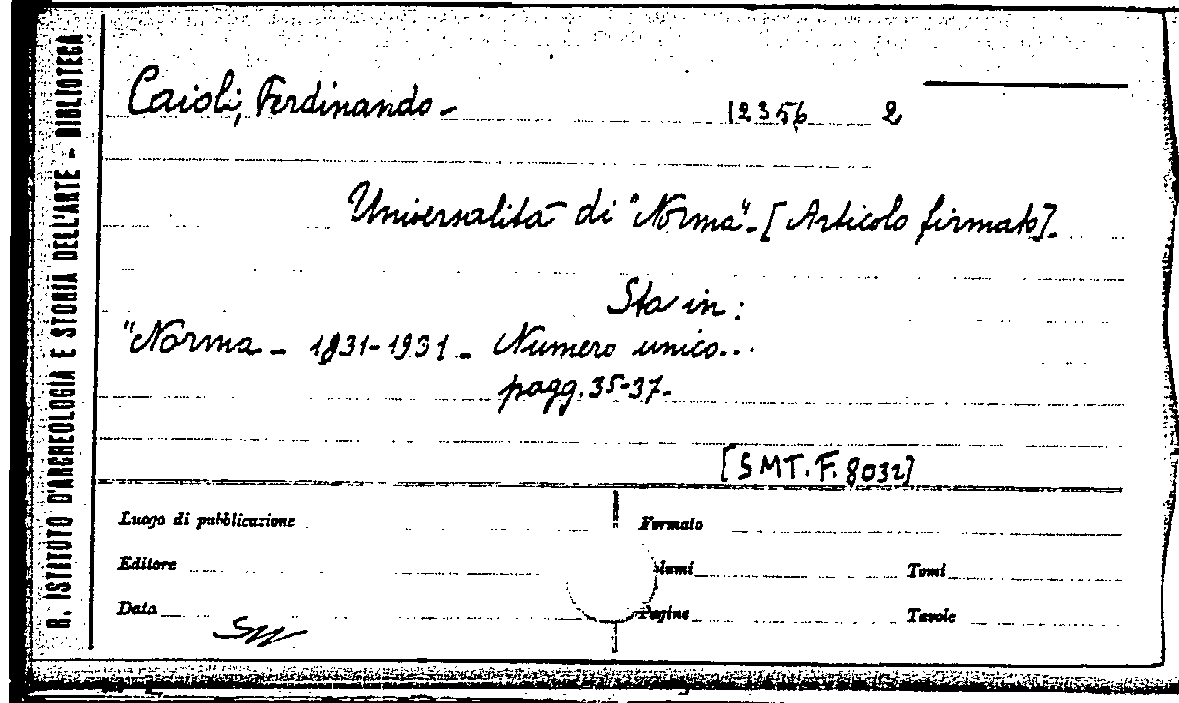 R. ISTITUTO D'ARCHEOLOGIA E STORIA DELL'ARTE - BIBLIOTECA
Caioli, Ferdinando -
12356 2
Universalità di "Norma" - [Articolo firmato].
Sta in:
"Norma - 1831-1931 - Numero unico...
pagg. 35-37.
[SMT. F. 8032]
Luogo di pubblicazione
Formato
Editore
lumi
Tomi
Data
Pagine
Tavole